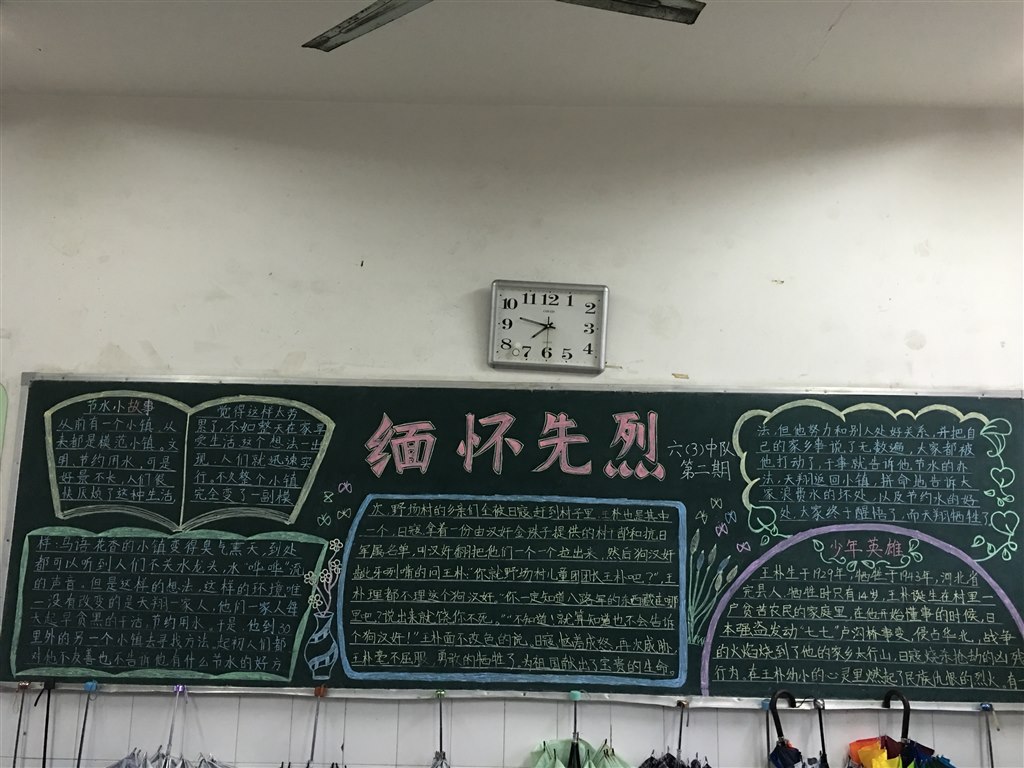 11 12 1
10 2
9 3
8 4
7 6 5
缅怀先烈
六(3)中队
第二期
节水小故事
从前有一个小镇，从
来都是模范小镇。文
明、节约用水，可是
好景不长，人们很
快厌烦了这种生活，
觉得这样太苦
累了，不如整天在家享
受生活，这个想法一出
现，人们就迅速实
行，不久整个小镇
完全变了一副模
样，鸟语花香的小镇变得臭气熏天，到处
都可以听到人们不关水龙头，水"哗哗"流
的声音。但是这样的想法，这样的环境唯
一没有改变的是天翔一家人，他们一家人每
天起早贪黑的干活，节约用水，于是，他到30
里外的另一个小镇去寻找方法，起初人们都
对他不友善也不告诉他有什么节水的好方
法，但他努力和别人处好关系，并把自
己的家乡事说了无数遍，大家都被
他打动了，于事就告诉他节水的办
法，天翔返回小镇，拼命地告诉大
家浪费水的坏处，以及节约水的好
处，大家终于醒悟了，而天翔牺牲了
水，野场村的乡亲们全被日寇赶到村子里，王朴也是其中
一个，日寇拿着一份由汉奸金孩子提供的村干部和抗日
军属名单，可汉奸翻把他们一个一个拉出来，然后狗汉奸
龇牙咧嘴的问王朴"你就野场村儿童团团长王朴吧？"，王
朴理都不理这个狗汉奸，"你一定知道八路军的东西藏在哪
里吧？说出来就饶你不死。""不知道！就算知道也不会告诉
个狗汉奸！"王朴面不改色的说，日寇恼羞成怒，再次威胁，
王朴毫不屈服，勇敢的牺牲了，为祖国献出了宝贵的生命。
少年英雄
王朴生于1929年，牺牲于1943年，河北省
完县人，牺牲时只有14岁，王朴诞生在村里一
户贫苦农民的家庭里，在他开始懂事的时候，日
本强盗发动"七七"卢沟桥事变，侵占华北，战争
的火焰烧到了他的家乡太行山，日寇烧杀抢劫的凶残
行为，在王朴幼小的心灵里燃起了民族仇恨的烈火，有一